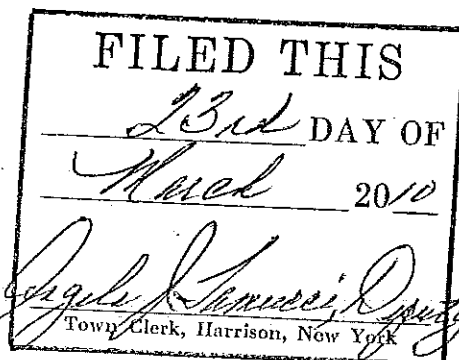 FILED THIS
23rd DAY OF
March 2010
Deputy
Town Clerk, Harrison, New York